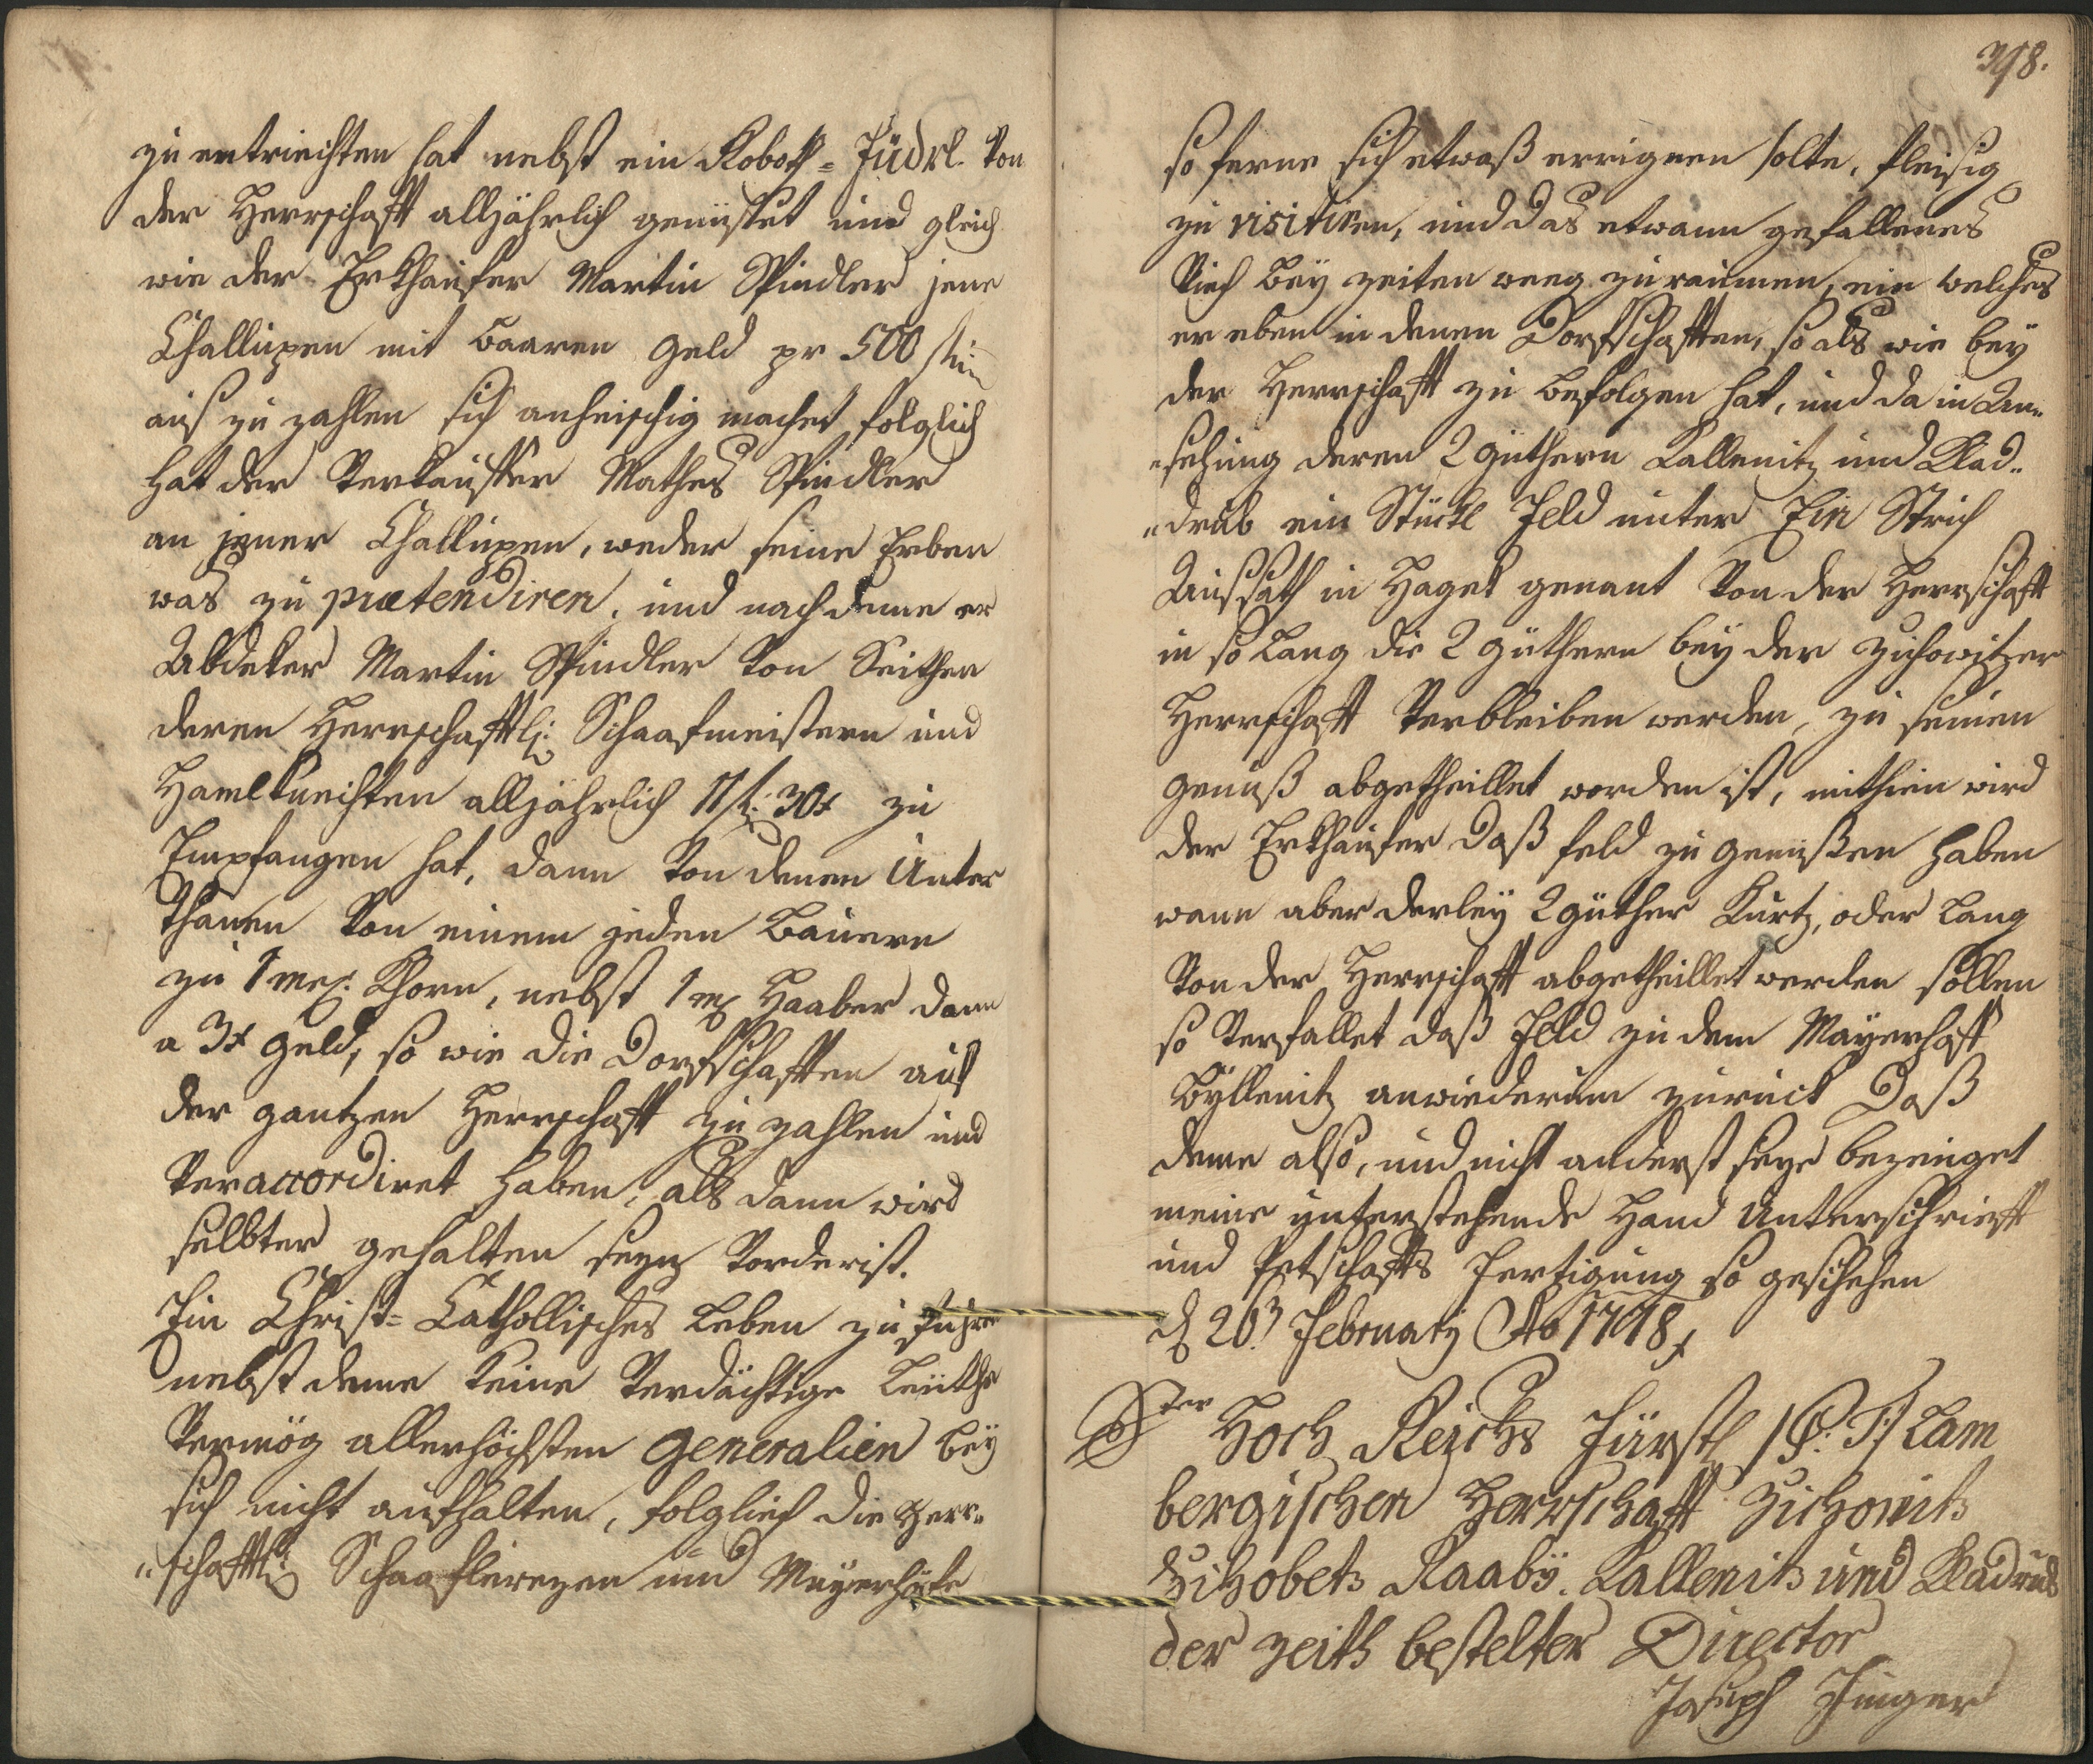 zu entriechten hat nebst ein Roboth= Füdrl. von
der Herrschafft alljährlich genüsset und gleich
wie der Erkhauffer Martin Spindler jene
Challuppen mit baaren Geld pr 500
aus zu zahlen sich anheischig machet, folglich
hat der Verkauffer Mathes Spindler
an jener Challuppen, weder seine Erben
was zu prætendiren, und nachdeme er
Abdeker Martin Spindler von Seithen
deren Herrschafftl: Schaafmeistern und
Hamlknechten alljährlich 11 f: 30 x zu
Empfangen hat, dann von denen Unter
thanen von einem jeden Bauern
zu 1 mes: Khorn, nebst 1 mes Haaber dann
a 3 x Geld, so wie die Dorfschafften aus
der gantzen Herrschafft zu zahlen und
veraccordiret haben, als dann wird
selbter gehalten seyn vorderist.
Ein Christ= Cathollisches Leben zu führen
nebst deme keine verdächtige Leüthe
vermög allerhöchsten Generalien bey
sich nicht aufhalten, folglich die Herr„
„schafftl: Schaaflereyen und Mayerhöfe
398.
so ferne sich etwaß erreignen solte, fleisig
zu visitiren, und das etwann gefallenes
Viech bey zeiten weeg zu raumen, ein welches
er eben in denen Dorfschafften, so als wie bey
der Herrschafft zu befolgen hat, und da in An„
„sehung deren 2 güthern Kallenitz und Klad„
„drub ein Stückl Feld unter Ein Strich
Aussath in Hagek genant von der Herrschafft
in so lang die 2 güthern bey der Zichowitzer
Herrschafft verbleiben werden, zu seinen
genuß abgetheillet worden ist, mithien wird
der Erkhauffer daß feld zu genüßen haben
wann aber derley 2 güther Kurtz, oder lang
von der Herrschafft abgetheillet werden sollen
so verfallet daß Feld zu dem Mayerhoff
Byllenitz anwiederum zuruck Daß
deme also, und nicht anderst seye bezeüget
meine unterstehende Hand Unterschriefft
und Petschaffts Fertigung so geschehen
d 20 Februarij Ao 1798
Der Hoch Reichs Fürstl /P: T:/ Lam
bergischen Herrschafft Zichowitz
Zihobetz Raaby. Kallenitz und Kladrub
der zeith bestelter Director
Joseph Unger